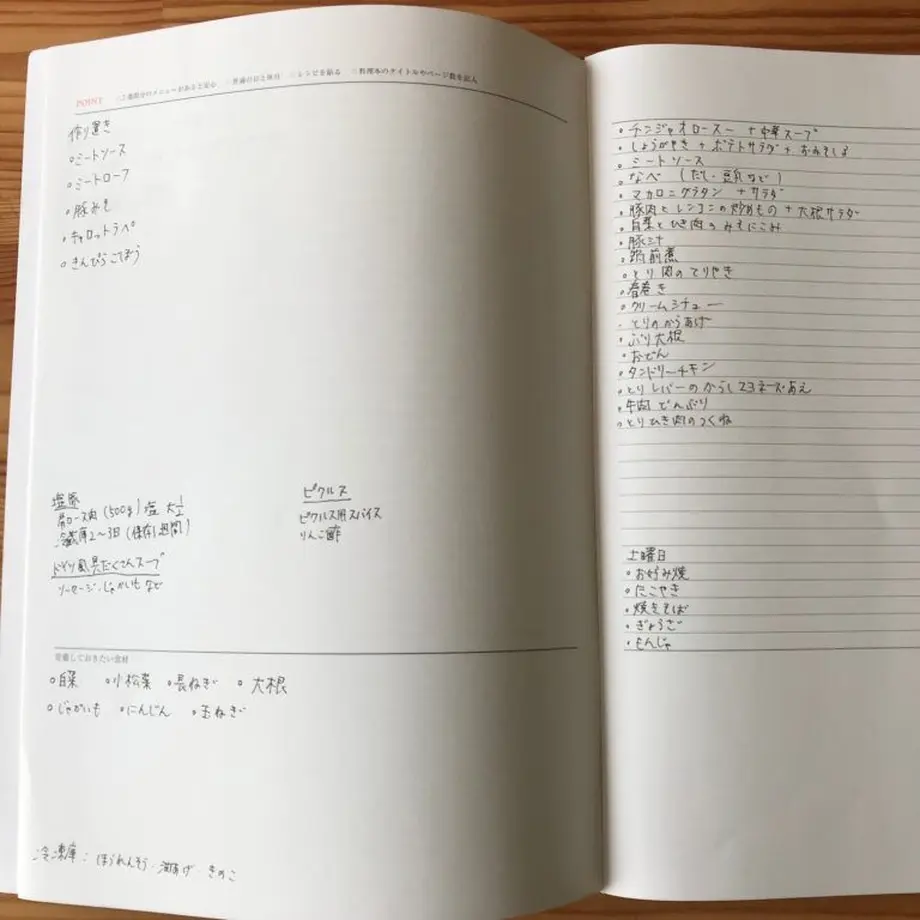 POINT ○2週間分のメニューがあると安心 ○普通の日と休日 ○レシピを貼る ○料理本のタイトルやページ数を記入
作り置き
○ミートソース
○ミートローフ
○豚みそ
○キャロットラペ
○きんぴらごぼう
塩豚
肩ロース肉(500g) 塩 大1
冷蔵庫2〜3日(保存1週間)
ドイツ風具だくさんスープ
ソーセージ・じゃがいもなど
ピクルス
ピクルス用スパイス
りんご酢
常備しておきたい食材
○白菜 ○小松菜 ○長ねぎ ○大根
○じゃがいも ○にんじん ○玉ねぎ
冷凍庫:ほうれんそう・油あげ・きのこ
○チンジャオロース〜 +中華スープ
○しょうがやき+ポテトサラダ+おみそしる
○ミートソース
○なべ (だし・豆乳など)
○マカロニグラタン +サラダ
○豚肉とレンコンの炒めもの+大根サラダ
○白菜とひき肉のみそにこみ
○豚ニラ
○筑前煮
○とり肉のてりやき
○春巻き
○クリームシチュー
・とりのからあげ
○ぶり大根
○おでん
○タンドリーチキン
○とりレバーのからしマヨネーズあえ
○牛肉どんぶり
○とりひき肉のつくね
土曜日
・お好み焼
・たこやき
・焼きそば
・ぎょうざ
・もんじゃ